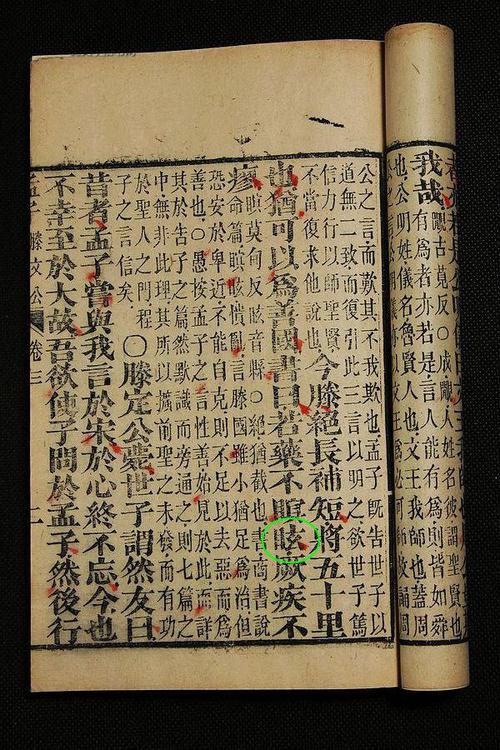 覵古莧反○成覵人姓名彼謂聖賢也
我哉
有爲者亦若是言人能有爲則皆如舜
也公明姓儀名魯賢人也文王我師也蓋周
公之言而歎其不我欺也孟子既告世子以
道無二致而復引此三言以明之欲世子篤
信力行以師聖賢
不當復求他說也
今滕絶長補短將五十里
也猶可以爲善國書曰若藥不瞑眩厥疾不
瘳
瞑莫甸反眩音縣○絶猶截也書商書說
命篇瞑眩憒亂言滕國雖小猶足爲治但
恐安於卑近不能自克則不足以去惡而爲
善也○愚按孟子之言性善始見於此而詳
具於告子之篇然默識而旁通之則七篇之
中無非此理其所以擴前聖之未發而有功
於聖人之門程
子之言信矣
○滕定公薨世子謂然友曰
昔者孟子嘗與我言於宋於心終不忘今也
不幸至於大故吾欲使子問於孟子然後行
孟子 滕文公 卷三 一